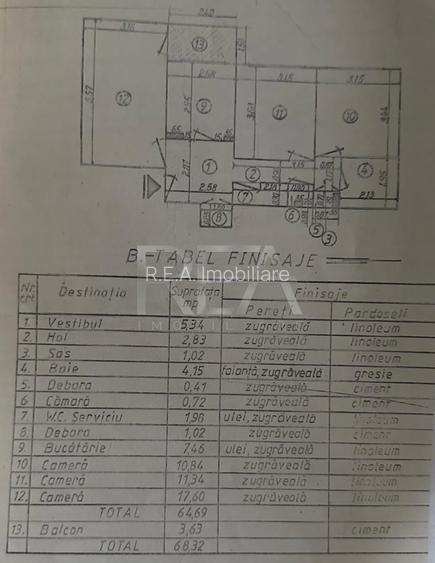 2.42
3.15
13
1.50
2.58
3.15
3.15
5.57
12
2.95
9
11
10
1
2.58
2
4
2.13
1.95
7
8
6
5
3
B.-TABEL FINISAJE
REA
R.E.A. Imobiliare
Nr. crt. Destinația Suprafața mp. Finisaje
Pereți Pardoseli
1. Vestibul 5,34 zugrăveală linoleum
2. Hol 2,83 zugrăveală linoleum
3. Sas 1,02 zugrăveală linoleum
4. Baie 4,15 faianță, zugrăveală gresie
5. Debara 0,41 zugrăveală ciment
6. Cămară 0,72 zugrăveală ciment
7. W.C. Serviciu 1,96 ulei, zugrăveală linoleum
8. Debara 1,02 zugrăveală ciment
9. Bucătărie 7,46 ulei, zugrăveală linoleum
10. Cameră 10,84 zugrăveală linoleum
11. Cameră 11,34 zugrăveală linoleum
12. Cameră 17,60 zugrăveală linoleum
TOTAL 64,69
13. Balcon 3,63 ciment
TOTAL 68,32